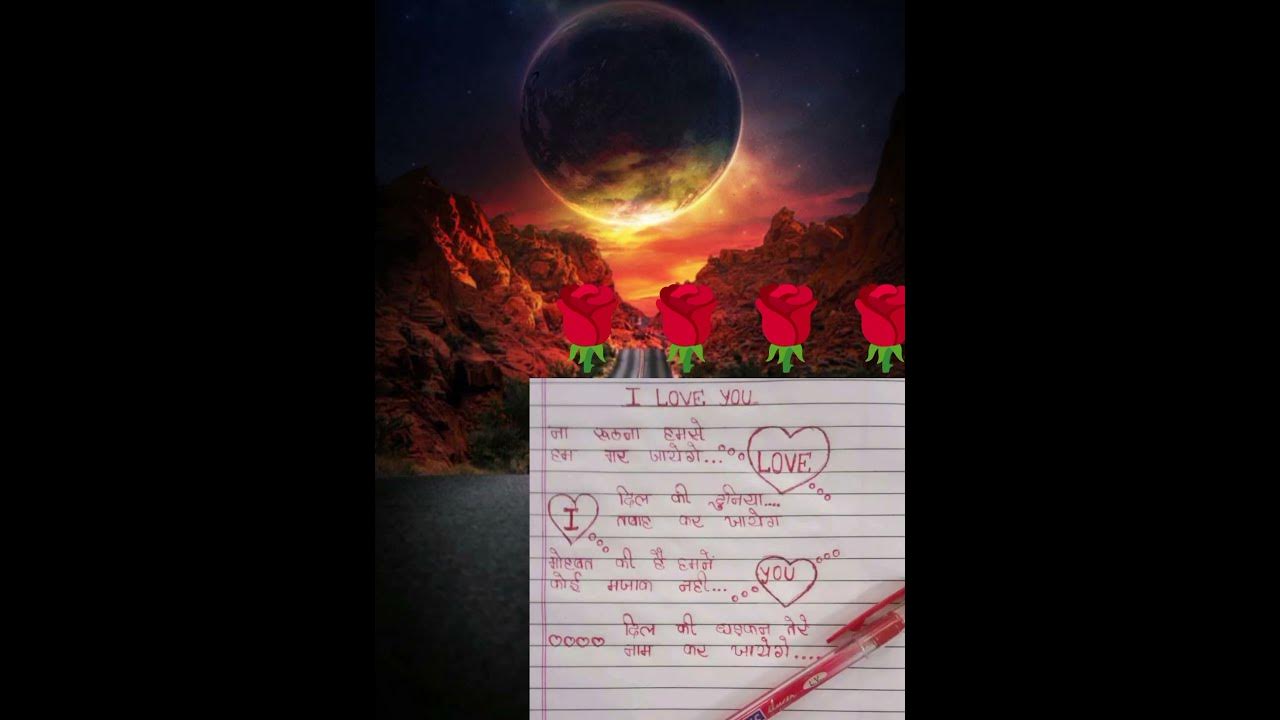 I LOVE YOU
ना रूठना हमसे
हम मर जायेगे...
LOVE
दिल की दुनिया....
I
तबाह कर जायेग
मोहबत की है हमनें
कोई मजाक नही...
YOU
दिल की धड़कन तेरे
नाम कर जायेगे....